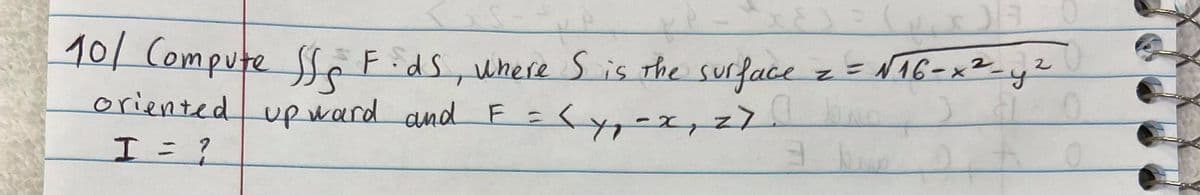 10/ Compute ∫∫S F · dS, where S is the surface z = √16-x²-y²
oriented upward and F = <y, -x, z>.
I = ?